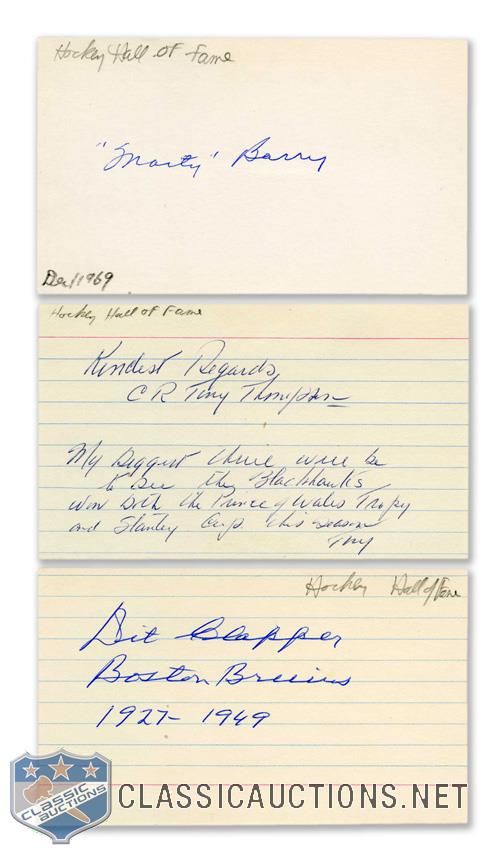 Hockey Hall of Fame
"Marty" Barry
Dec/1969
Hockey Hall of Fame
Kindest Regards,
C R Tiny Thompson
My Biggest thrill will be
to see the Blackhawks
won both the Prince of Wales Tropy
and Stanley Cup this season
Tiny
Hockey Hall of Fame
Dit Clapper
Boston Bruins
1927- 1949
CLASSIC
AUCTIONS
CLASSICAUCTIONS.NET